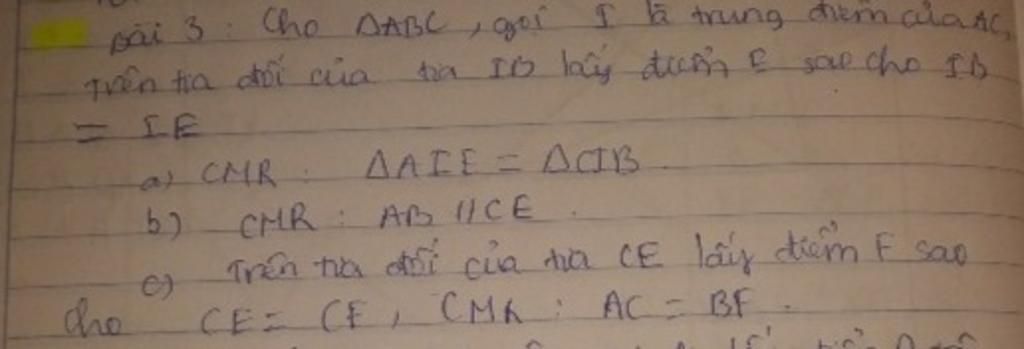 Bài 3 : Cho ΔABC, gọi I là trung điểm của AC,
Trên tia đối của tia IB lấy điểm E sao cho IB
= IE
a) CMR : ΔAIE = ΔCIB
b) CMR : AB // CE .
c) Trên tia đối của tia CE lấy điểm F sao
cho CE = CF , CMR : AC = BF .